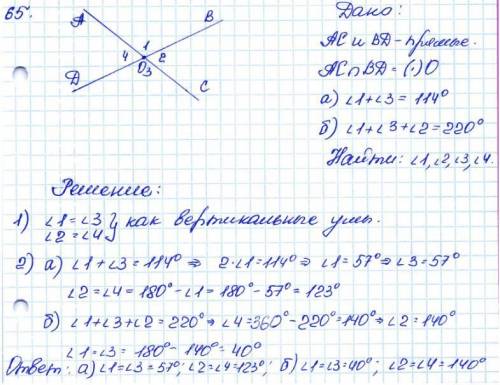 65.
A
B
1
4
2
O
3
D
C
Дано:
AC и BD - прямые.
AC∩BD = (·)O
а) ∠1+∠3 = 114°
б) ∠1+∠3+∠2=220°
Найти: ∠1,∠2,∠3,∠4.
Решение:
1) ∠1=∠3 } как вертикальные углы.
∠2=∠4
2) а) ∠1+∠3=114° ⇒ 2·∠1=114° ⇒ ∠1=57° ⇒ ∠3=57°
∠2=∠4=180°-∠1=180°-57°=123°
б) ∠1+∠3+∠2=220° ⇒ ∠4=360°-220°=140° ⇒ ∠2=140°
∠1=∠3=180°-140°=40°
Ответ: а) ∠1=∠3=57°; ∠2=∠4=123°; б) ∠1=∠3=40°; ∠2=∠4=140°